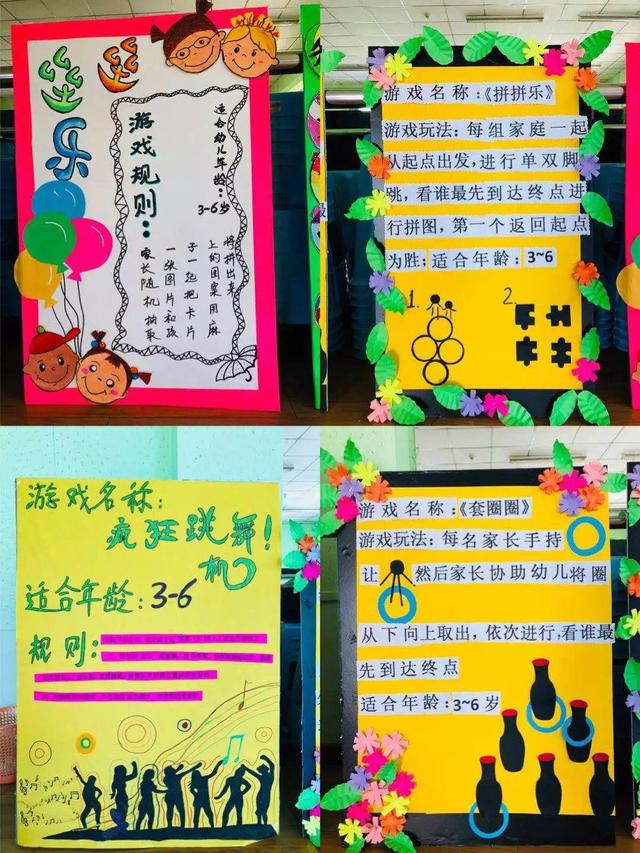 乐
适合幼儿年龄：3-6岁
游戏规则：
家长随机抽取
一张图片和孩
子一起把卡片
上的图案用麻
将拼出来
游戏名称：《拼拼乐》
游戏玩法：每组家庭一起
从起点出发，进行单双脚
跳，看谁最先到达终点进
行拼图，第一个返回起点
为胜；适合年龄：3~6
1.
2.
游戏名称：
疯狂跳舞机！
适合年龄：3-6
规则：
游戏名称：《套圈圈》
游戏玩法：每名家长手持
让 然后家长协助幼儿将圈
从下向上取出，依次进行，看谁最
先到达终点
适合年龄：3~6岁